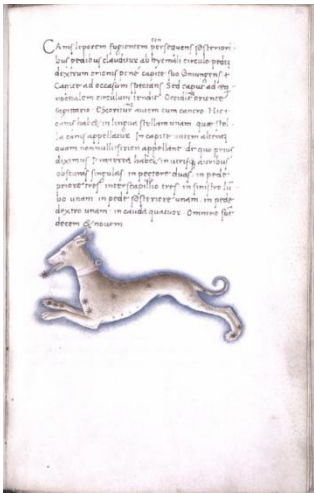 Canis leporem fugientem persequens posteriori
bus pedibus clauditur ab hyemali circulo pedem
dextrum orionis pene capite suo coniungens &
Caput ad occasum spectans Sed caput ad aequi
noctialem circulum tendit Occidit oriente
sagittario Exoritur autem cum cancro Hic
canis habet in lingua stellam unam quae stel
la canis appellatur In capite autem alteram
quam nonnulli sirion appellant de quo prius
diximus Praeterea habet in utrisque auribus
obscuras singulas in pectore duas in pede
priore tres interscapilio tres in sinistro lu
bo unam in pede posteriore unam in pede
dextro unam in cauda quatuor Omnino sunt
decem & novem